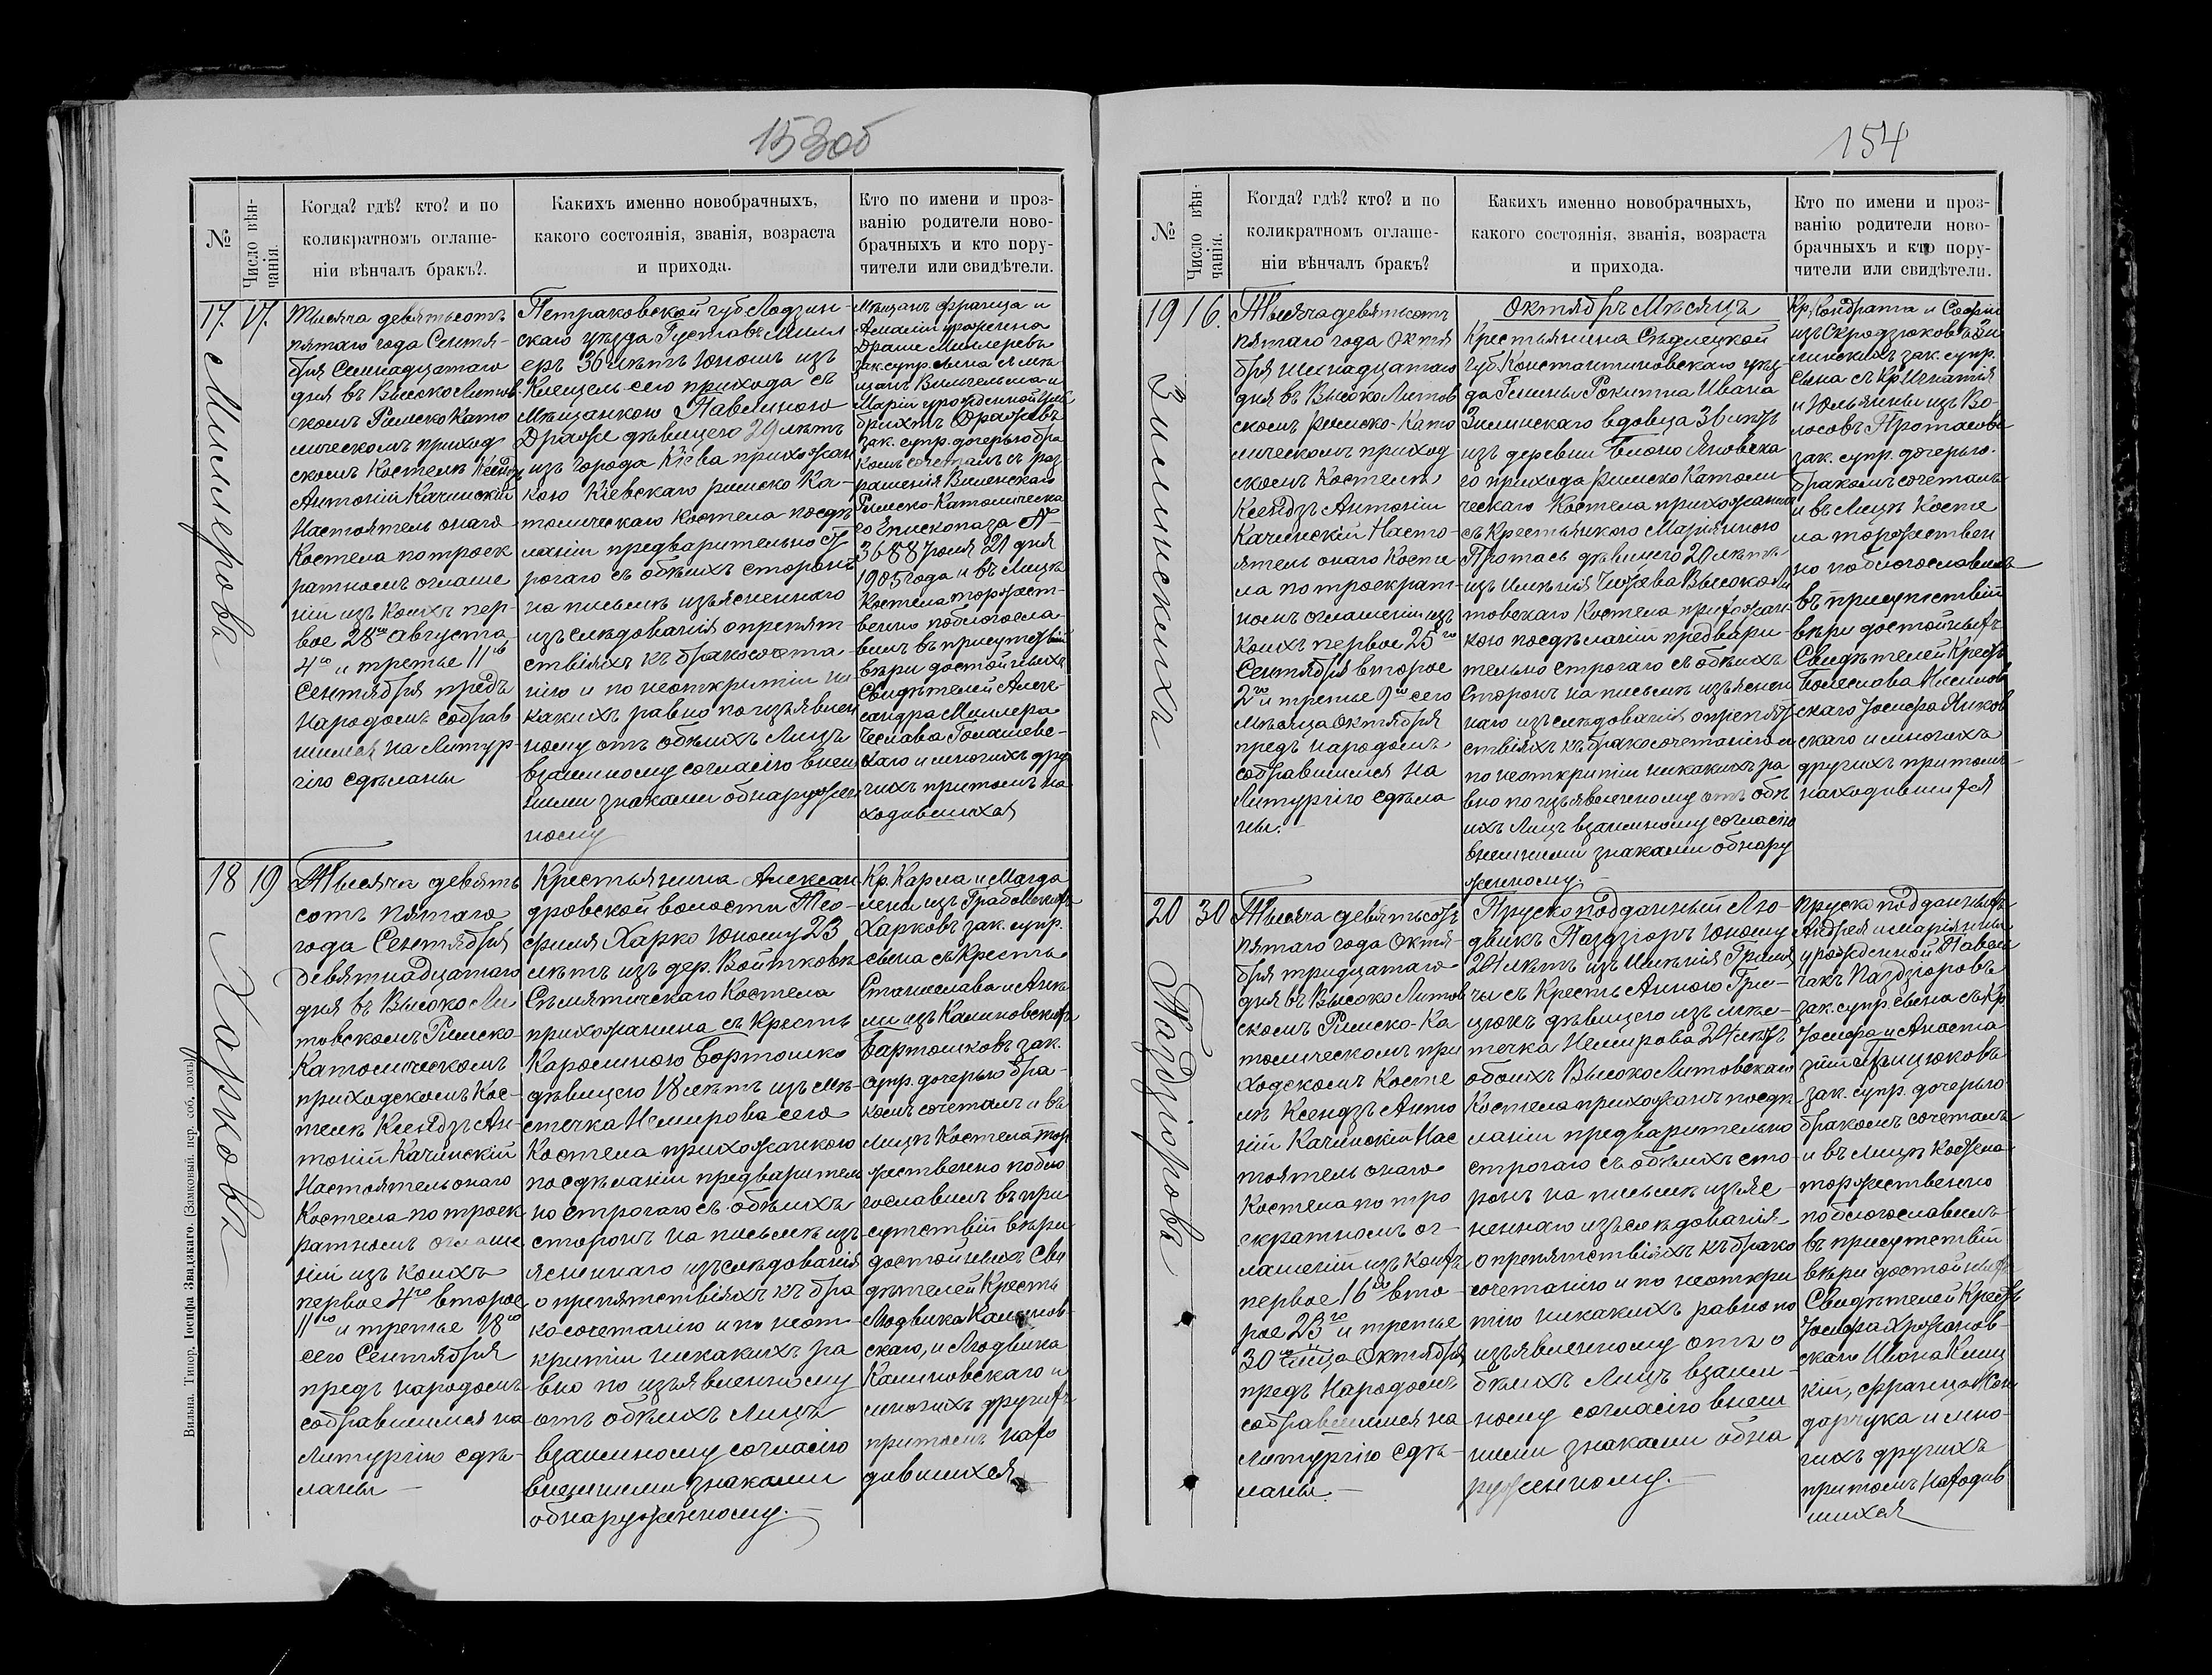 153об
№
Число вѣн-
чанія.
Когда? гдѣ? кто? и по
коликратномъ оглаше-
ніи вѣнчалъ бракъ?.
Какихъ именно новобрачныхъ,
какого состоянія, званія, возраста
и прихода.
Кто по имени и проз-
ванію родители ново-
брачныхъ и кто пору-
чители или свидѣтели.
17.
17.
Миллерова
Тысяча девятьсотъ
пятаго года Сентя-
бря Семнадцатаго
дня въ Высоко Литов-
скомъ Римско Като
лическомъ приход
скомъ Костелѣ Ксендзъ
Антоній Качинскій
Настоятель онаго
Костела по троек
ратномъ оглаше
ніи изъ коихъ пер-
вое 28го Августа,
4го и третье 11го
Сентября предъ
народомъ собрав
шимся на Литур-
гію сдѣланы
Петраковской губ. Лодзин-
скаго уѣзда Густавъ Милл
еръ 36 лѣтъ юношъ изъ
сего прихода съ
Мѣщанкою Павлиною
Драше дѣвицею 29 лѣтъ
изъ города Кіева прихожан
кою Кіевскаго римско Ка-
толическаго Костела по сдѣ
ланіи предварительно ст
рогаго съ обѣихъ сторонъ
на письмѣ изъясненнаго
изъслѣдованія о препят-
ствіяхъ къ бракосочета-
нію и по неоткрытіи ни
какихъ равно по изъявлен
ному отъ обѣихъ Лицъ
взаимному согласію внеш
ними знаками обнаружен
ному
Мѣщанъ Франца и
Амаліи урожденна
Драше Миллеровъ
зак. супр. сына съ Мѣ
щанъ Вильгельма и
Маріи урожденной
Драшевъ
зак. супр. дочерью бра
комъ сочеталъ съ раз
рѣшенія Виленскаго
Римско-Католическа
го Епископа за №
3688 Іюля 21 дня
1905 года и въ Лицѣ
Костела торжест-
венно поблагосла-
вилъ въ присутствіи
вѣри достойныхъ
Свидѣтелей Алек-
сандра Миллера
Чеслава
скаго и многихъ дру
гихъ притомъ на
ходившихся
18
19
Харковъ
Тысяча девять
сотъ пятаго
года Сентября
девятнадцатаго
дня въ Высоко Ли
товскомъ Римско-
Католическомъ
приходскомъ Кос-
телѣ Ксендзъ Ан-
тоній Качинскій
Настоятель онаго
Костела по троек
ратномъ оглаше
ніи изъ коихъ
первое 4го второе
11го и третье 18го
сего Сентября
предъ народомъ
собравшимся на
Литургію сдѣ-
ланы —
Крестьянина Алексан
дровской волости Тео-
филя Харко юношу 23
лѣтъ изъ дер. Войтковъ
Сѣмятичскаго Костела
прихожанина съ Кресть
Каролиною Бортошко
дѣвицею 18 лѣтъ изъ мѣ-
стечка Немирова сего
Костела прихожанкою
по сдѣланіи предварител
но строгаго съ обѣихъ
сторонъ на письмѣ изъ
ясненнаго изъслѣдованія
о препятствіяхъ къ бра
косочетанію и по неот-
крытіи никакихъ ра
вно по изъявленному
отъ обѣихъ Лицъ
взаимному согласію
внешними знаками
обнаруженному. —
Кр. Карла и Магда
лены изъ
Харковъ зак. супр.
сына съ Кресть
Станислава и Анѣ
ли изъ Калиновскихъ
Бартошковъ зак.
супр. дочерью бра-
комъ сочеталъ и въ
Лицѣ Костела тор
жественно побла
гославилъ въ при
сутствіи вѣри
достойныхъ Сви
дѣтелей Кресть
Людвика Калинов-
скаго, и Людвика
Калиновскаго и
многихъ другихъ
притомъ нахо
дившихся
Вильна. Типогр. Іосифа Звадзкаго. (Замковый. пер. соб. домъ).
154
№
Число вѣн-
чанія.
Когда? гдѣ? кто? и по
коликратномъ оглаше-
ніи вѣнчалъ бракъ?
Какихъ именно новобрачныхъ,
какого состоянія, званія, возраста
и прихода.
Кто по имени и проз-
ванію родители ново-
брачныхъ и кто пору-
чители или свидѣтели.
19
16.
Зилинскихъ
Тысяча девятьсотъ
пятаго года Октя
бря шестнадцатаго
дня въ Высоко Литов
скомъ Римско-Като
лическомъ приход
скомъ Костелѣ
Ксендзъ Антоній
Качинскій Насто-
ятель онаго Косте
ла по троекрат-
номъ оглашеніи изъ
коихъ первое 25го
Сентября второе
2го и третье 9го сего
Мѣсяца Октября
предъ народомъ
собравшимся на
Литургію сдѣла
ны. —
Октябрь Мѣсяцъ
Крестьянина Сѣдлецкой
губ. Константиновскаго уѣз-
да Гмины Рокитна Ивана
Зилинскаго вдовца 36 лѣтъ
изъ деревни Яновска
го прихода Римско Католи
ческаго Костела прихожанина
съ Крестьянкою Маріянною
Протась дѣвицею 20 лѣтъ
изъ имѣнія Высоко Ли
товскаго Костела прихожан
кою по сдѣланіи предвари-
тельно строгаго съ обѣихъ
сторонъ на письмѣ изъяснен
наго изъслѣдованія о препят
ствіяхъ къ бракосочетанію и
по неоткрытіи никакихъ ра
вно по изъявленному отъ обѣ
ихъ Лицъ взаимному согласію
внешними знаками обнару
женному. —
Кр. Кондрата и Софіи
изъ Скродзюковъ Зи
линскихъ зак. супр.
сына съ Кр. Игнатія
и Юльянны изъ Во-
лосовъ Протасова
зак. супр. дочерью.
бракомъ сочеталъ
и въ Лицѣ Косте
ла торжествен
но поблагославилъ
въ присутствіи
вѣри достойныхъ
Свидѣтелей Кресть
Болеслава
скаго Іосифа
скаго и многихъ
другихъ притомъ
находившихся
20
30
Паздзіоровъ
Тысяча девятьсотъ
пятаго года Октя-
бря тридцатаго
дня въ Высоко Литов
скомъ Римско-Ка
толическомъ при
ходскомъ Косте
лѣ Ксендзъ Анто
ній Качинскій Нас
тоятель онаго
Костела по тро
екратномъ ог-
лашеніи изъ коихъ
первое 16го вто-
рое 23го и третье
30го Октября
предъ Народомъ
собравшимся на
Литургію сдѣ-
ланы. —
Прускоподданный Лю-
двикъ Паздзіоръ юношу
24 лѣтъ изъ имѣнія
съ Кресть Анною Гри-
цюкъ дѣвицею изъ мѣс-
течка Немирова 24 лѣтъ
обоихъ Высоко Литовскаго
Костела прихожанъ по сдѣ
ланіи предварительно
строгаго съ обѣихъ сто-
ронъ на письмѣ изъяс-
неннаго изъслѣдованія
о препятствіяхъ къ брако
сочетанію и по неоткры
тію никакихъ равно по
изъявленному отъ о
бѣихъ Лицъ взаим-
ному согласію внеш
ними знаками обна
руженному. —
Прускоподданныхъ
Андрея и Маріянны
урожденной
Паздзіоровъ
зак. супр. сына съ Кр.
Іосифа и Анаста
зіи Грицюковъ
зак. супр. дочерью
бракомъ сочеталъ
и въ Лицѣ Костела
торжественно
поблагославилъ
въ присутствіи
вѣри достойныхъ
Свидѣтелей Кресть
Іосифа Хржанов-
скаго Ивана
Франца Кон
дарчука и мно-
гихъ другихъ
притомъ находив
шихся